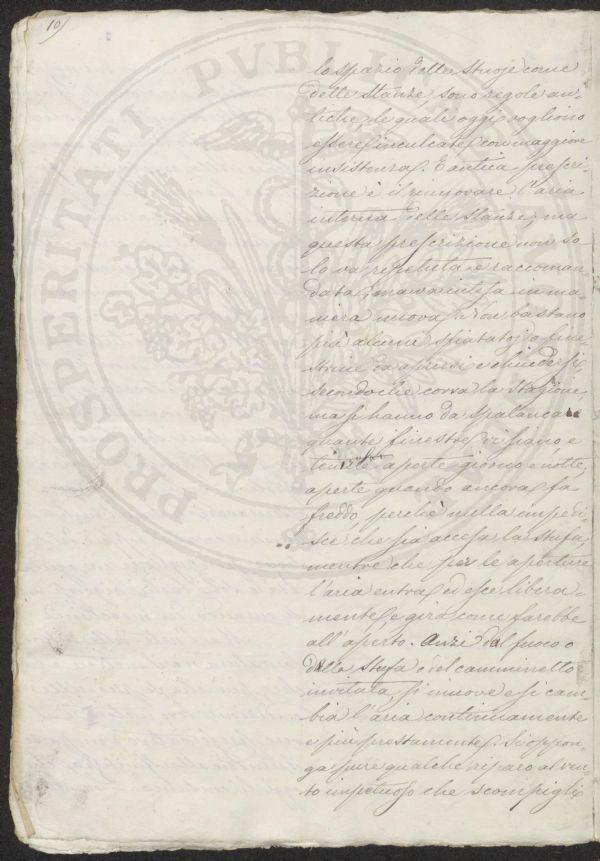 10)
PROSPERITATI PVBLI
lo spazio delle stuoje come
delle stanze, sono regole an-
tiche, le quali oggi vogliono
essere inculcate con maggiore
insistenza. E antica prescri-
zione è il rinnovare l'aria
interna delle stanze; ma
questa prescrizione non so
lo va ripetuta e raccoman
data, ma va intesa in ma-
niera nuova. Non bastano
più alcuni sfiatatoj o fine
strine da aprirsi e chiudersi
secondo che corra la stagione,
ma si hanno da spalancare
quante finestre vi siano e
tenerle aperte giorno e notte,
aperte quando ancora fa
freddo, perchè nulla impedi-
sce che sia accesa la stufa,
mentre che per le aperture
l'aria entra ed esce libera-
mente, e gira come farebbe
all'aperto. Anzi dal fuoco o
della stufa o del camminetto
invitata si muove e si cam
bia l'aria continuamente
e più prestamente. Si oppon
ga pure qualche riparo al ven
to impetuoso che scompigli